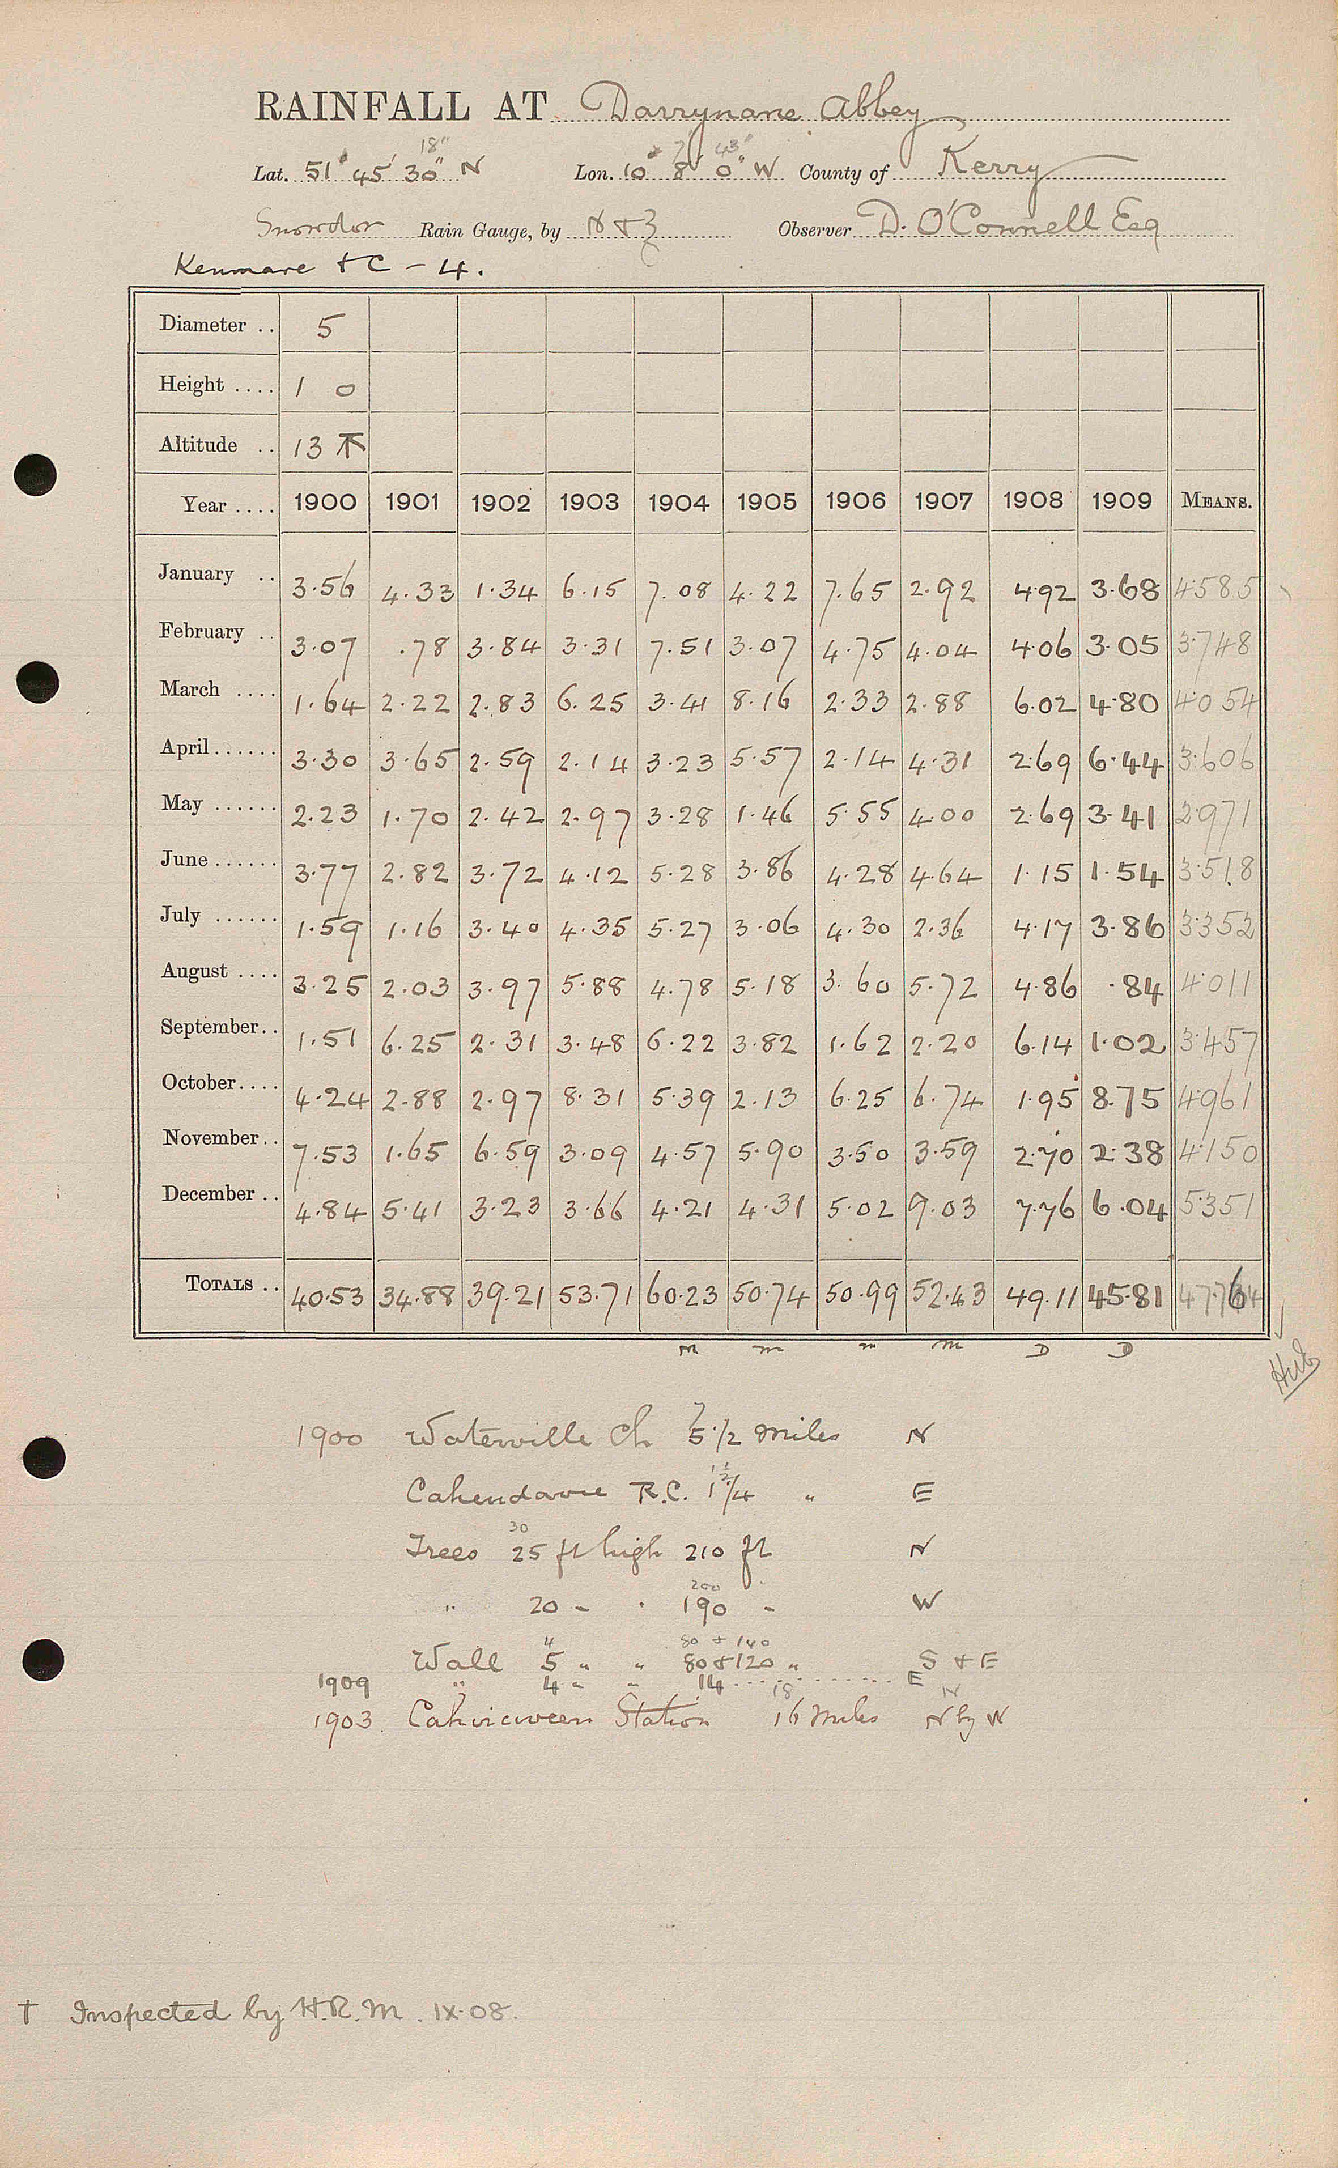 RAINFALL AT Darrynane Abbey
18" 7 43"
Lat. 51° 45' 30" N Lon. 10° 8' 0" W County of Kerry
Snowdon Rain Gauge, by N & Z Observer D. O'Connell Esq
Kenmare &C - 4.
Diameter .. 5
Height .... 1 0
Altitude .. 13
Year .... 1900 1901 1902 1903 1904 1905 1906 1907 1908 1909 MEANS.
January .. 3.56 4.33 1.34 6.15 7.08 4.22 7.65 2.92 4.92 3.68 4.585
February .. 3.07 .78 3.84 3.31 7.51 3.07 4.75 4.04 4.06 3.05 3.748
March .... 1.64 2.22 2.83 6.25 3.41 8.16 2.33 2.88 6.02 4.80 4.054
April...... 3.30 3.65 2.59 2.14 3.23 5.57 2.14 4.31 2.69 6.44 3.606
May ...... 2.23 1.70 2.42 2.97 3.28 1.46 5.55 4.00 2.69 3.41 2.971
June ...... 3.77 2.82 3.72 4.12 5.28 3.86 4.28 4.64 1.15 1.54 3.518
July ...... 1.59 1.16 3.40 4.35 5.27 3.06 4.30 2.36 4.17 3.86 3.352
August .... 3.25 2.03 3.97 5.88 4.78 5.18 3.60 5.72 4.86 .84 4.011
September.. 1.51 6.25 2.31 3.48 6.22 3.82 1.62 2.20 6.14 1.02 3.457
October.... 4.24 2.88 2.97 8.31 5.39 2.13 6.25 6.74 1.95 8.75 4.961
November.. 7.53 1.65 6.59 3.09 4.57 5.90 3.50 3.59 2.70 2.38 4.150
December .. 4.84 5.41 3.23 3.66 4.21 4.31 5.02 9.03 7.76 6.04 5.351
TOTALS .. 40.53 34.88 39.21 53.71 60.23 50.74 50.99 52.43 49.11 45.81 47.764
M M M M D D
1900 Waterville Ch 5 1/2 miles N
Cahendavie R.C. 1 3/4 " E
30
Trees 25 ft high 210 ft N
200
" 20 " " 190 " W
4 80 + 140
Wall 5 " " 80 & 120 " S & E
1909 " 4 " " 14 ........... E
18 N
1903 Cahirciveen Station 16 miles N by W
† Inspected by H.R.M. IX.08.